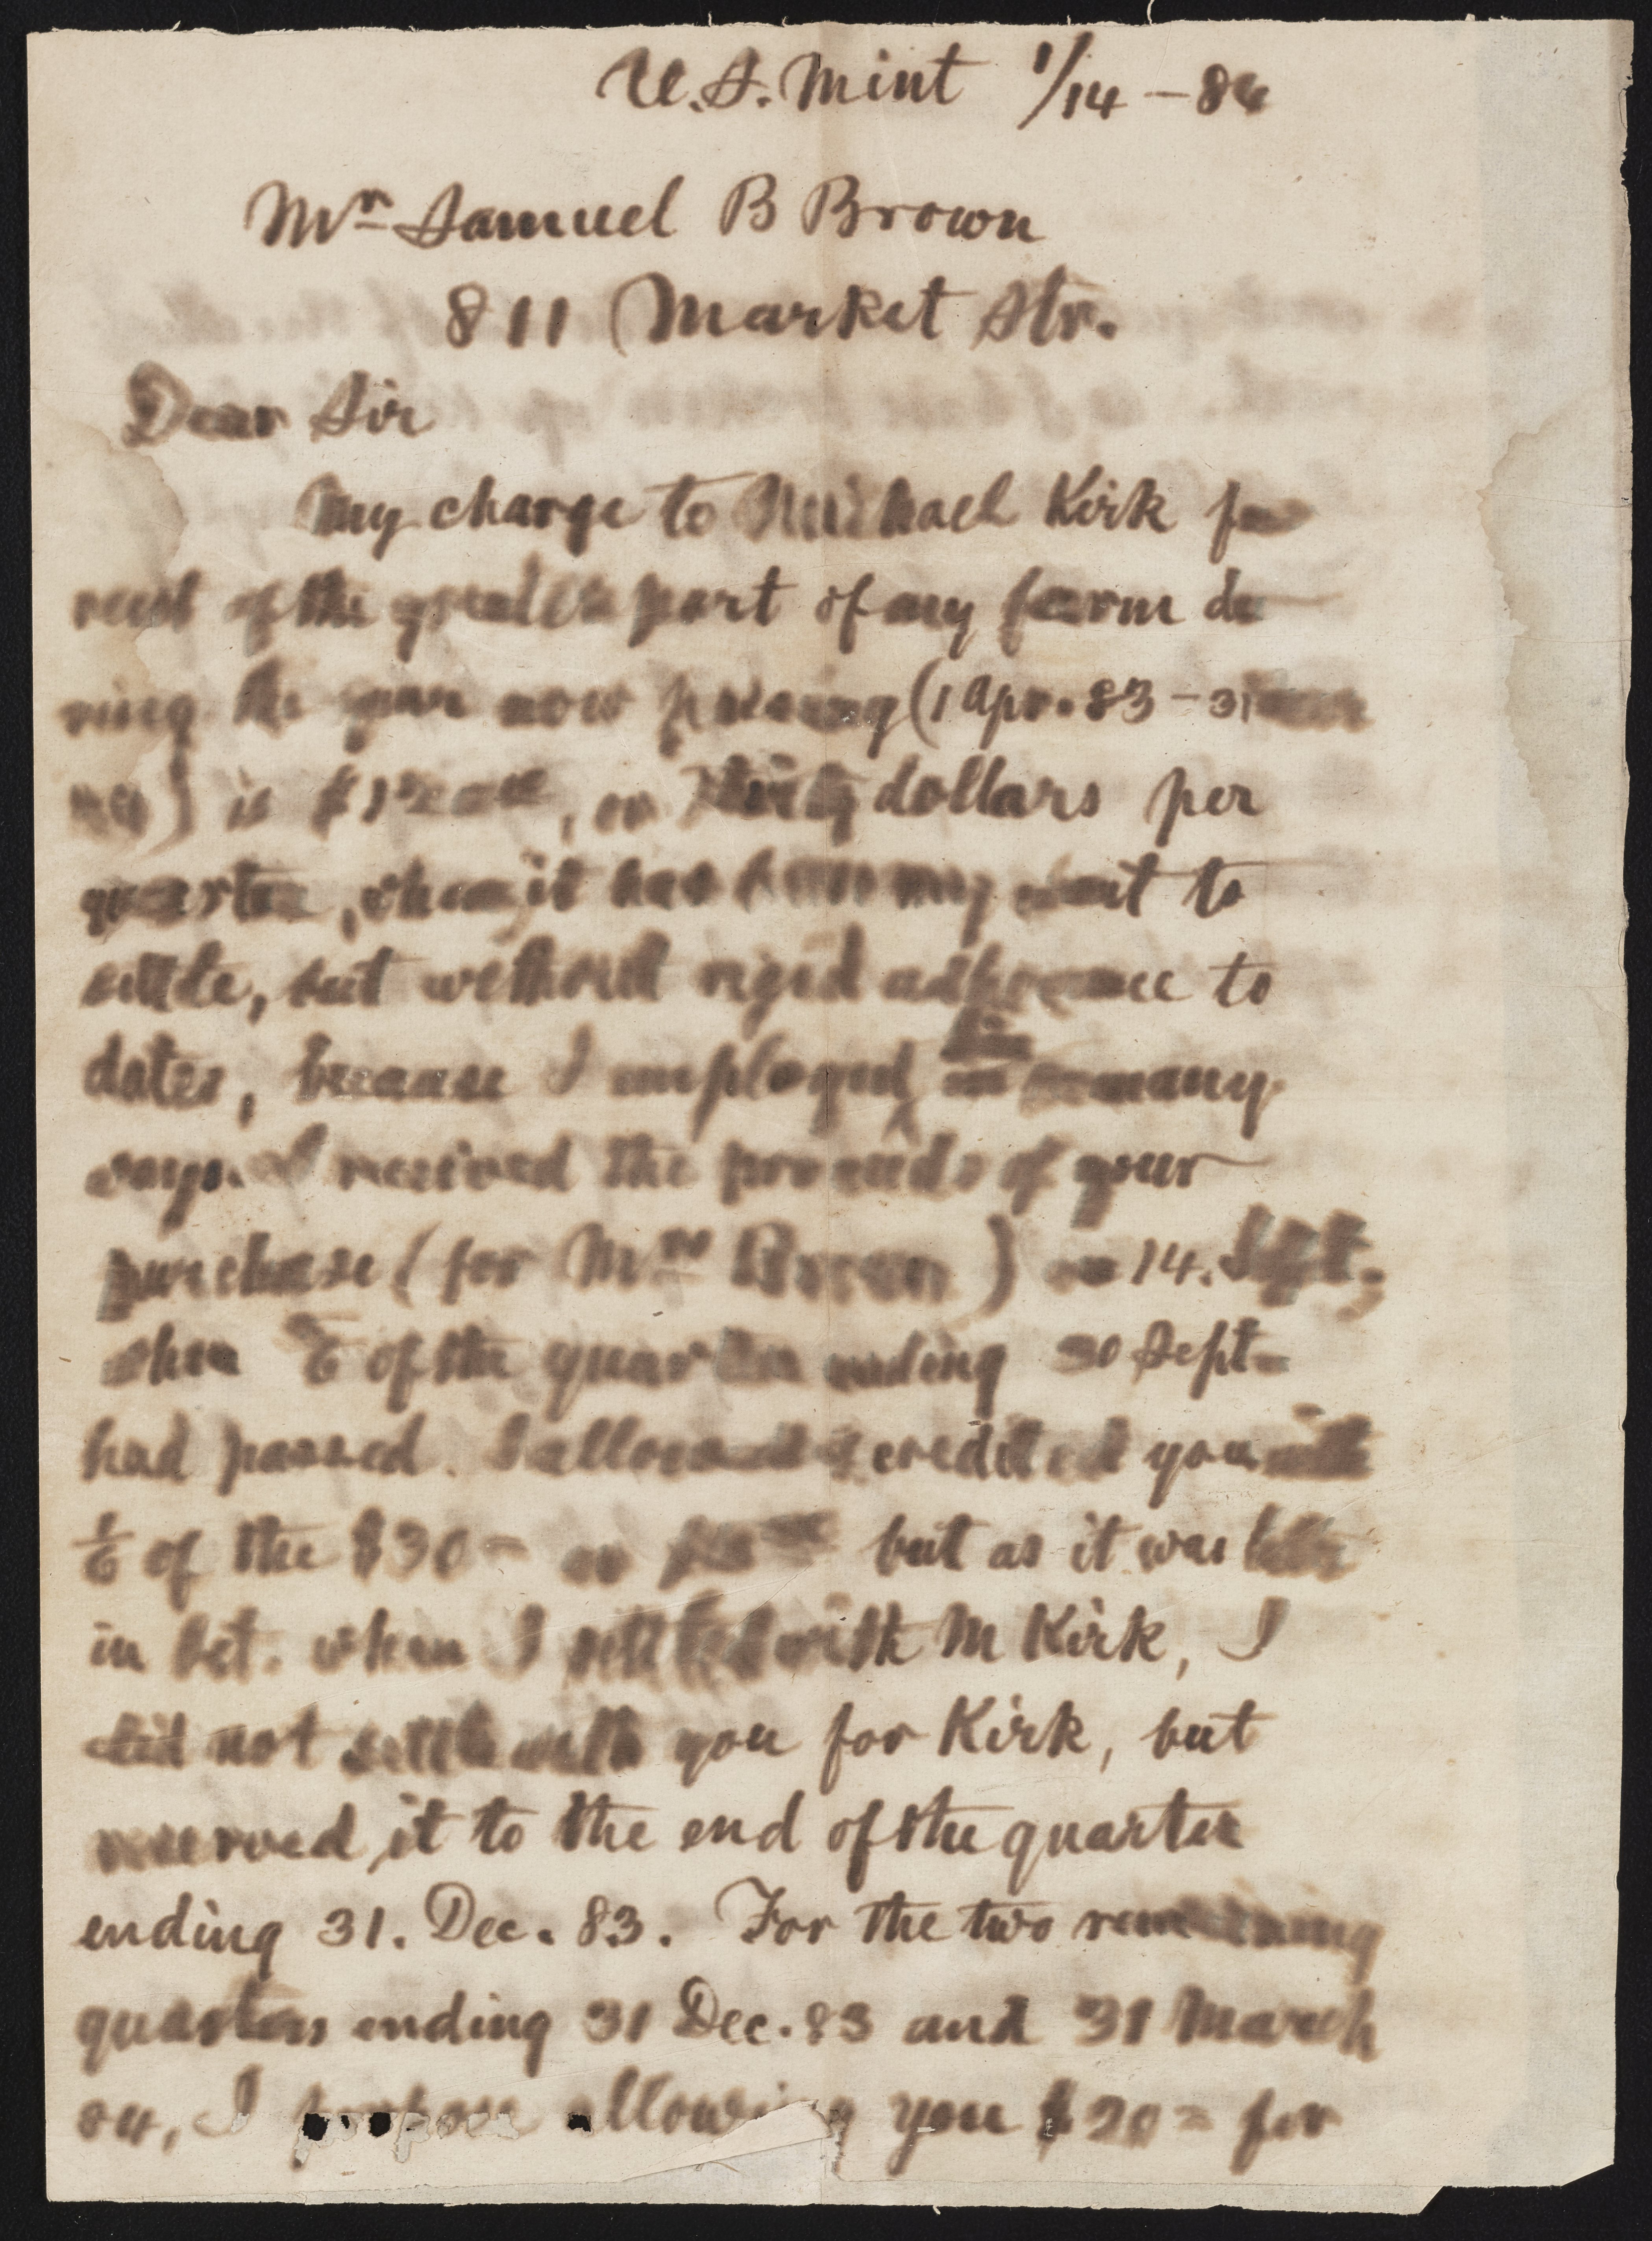 U.S. Mint 1/14 – 84
Mr Samuel B Brown
811 Market Str.
Dear Sir
My charge to Michael Kirk for
rent of the greater part of my farm du
ring the year now passing (1 Apr. 83 – 31
84) is $120, or thirty dollars per
quarter, when it has been my wont to
settle, but without rigid adherence to
dates, because I employed him in many
ways. I received the proceeds of your
purchase (for Mrs Brown) on 14. Sept.,
when of the quarter ending 30 Sept
had passed. I allowed & credited you with
1/6 of the $30 – or but as it was
in Oct. when I settled with M Kirk, I
did not settle with you for Kirk, but
reserved it to the end of the quarter
ending 31. Dec. 83. For the two remaining
quarters ending 31 Dec. 83 and 31 March
84, I propose allowing you $20 = for